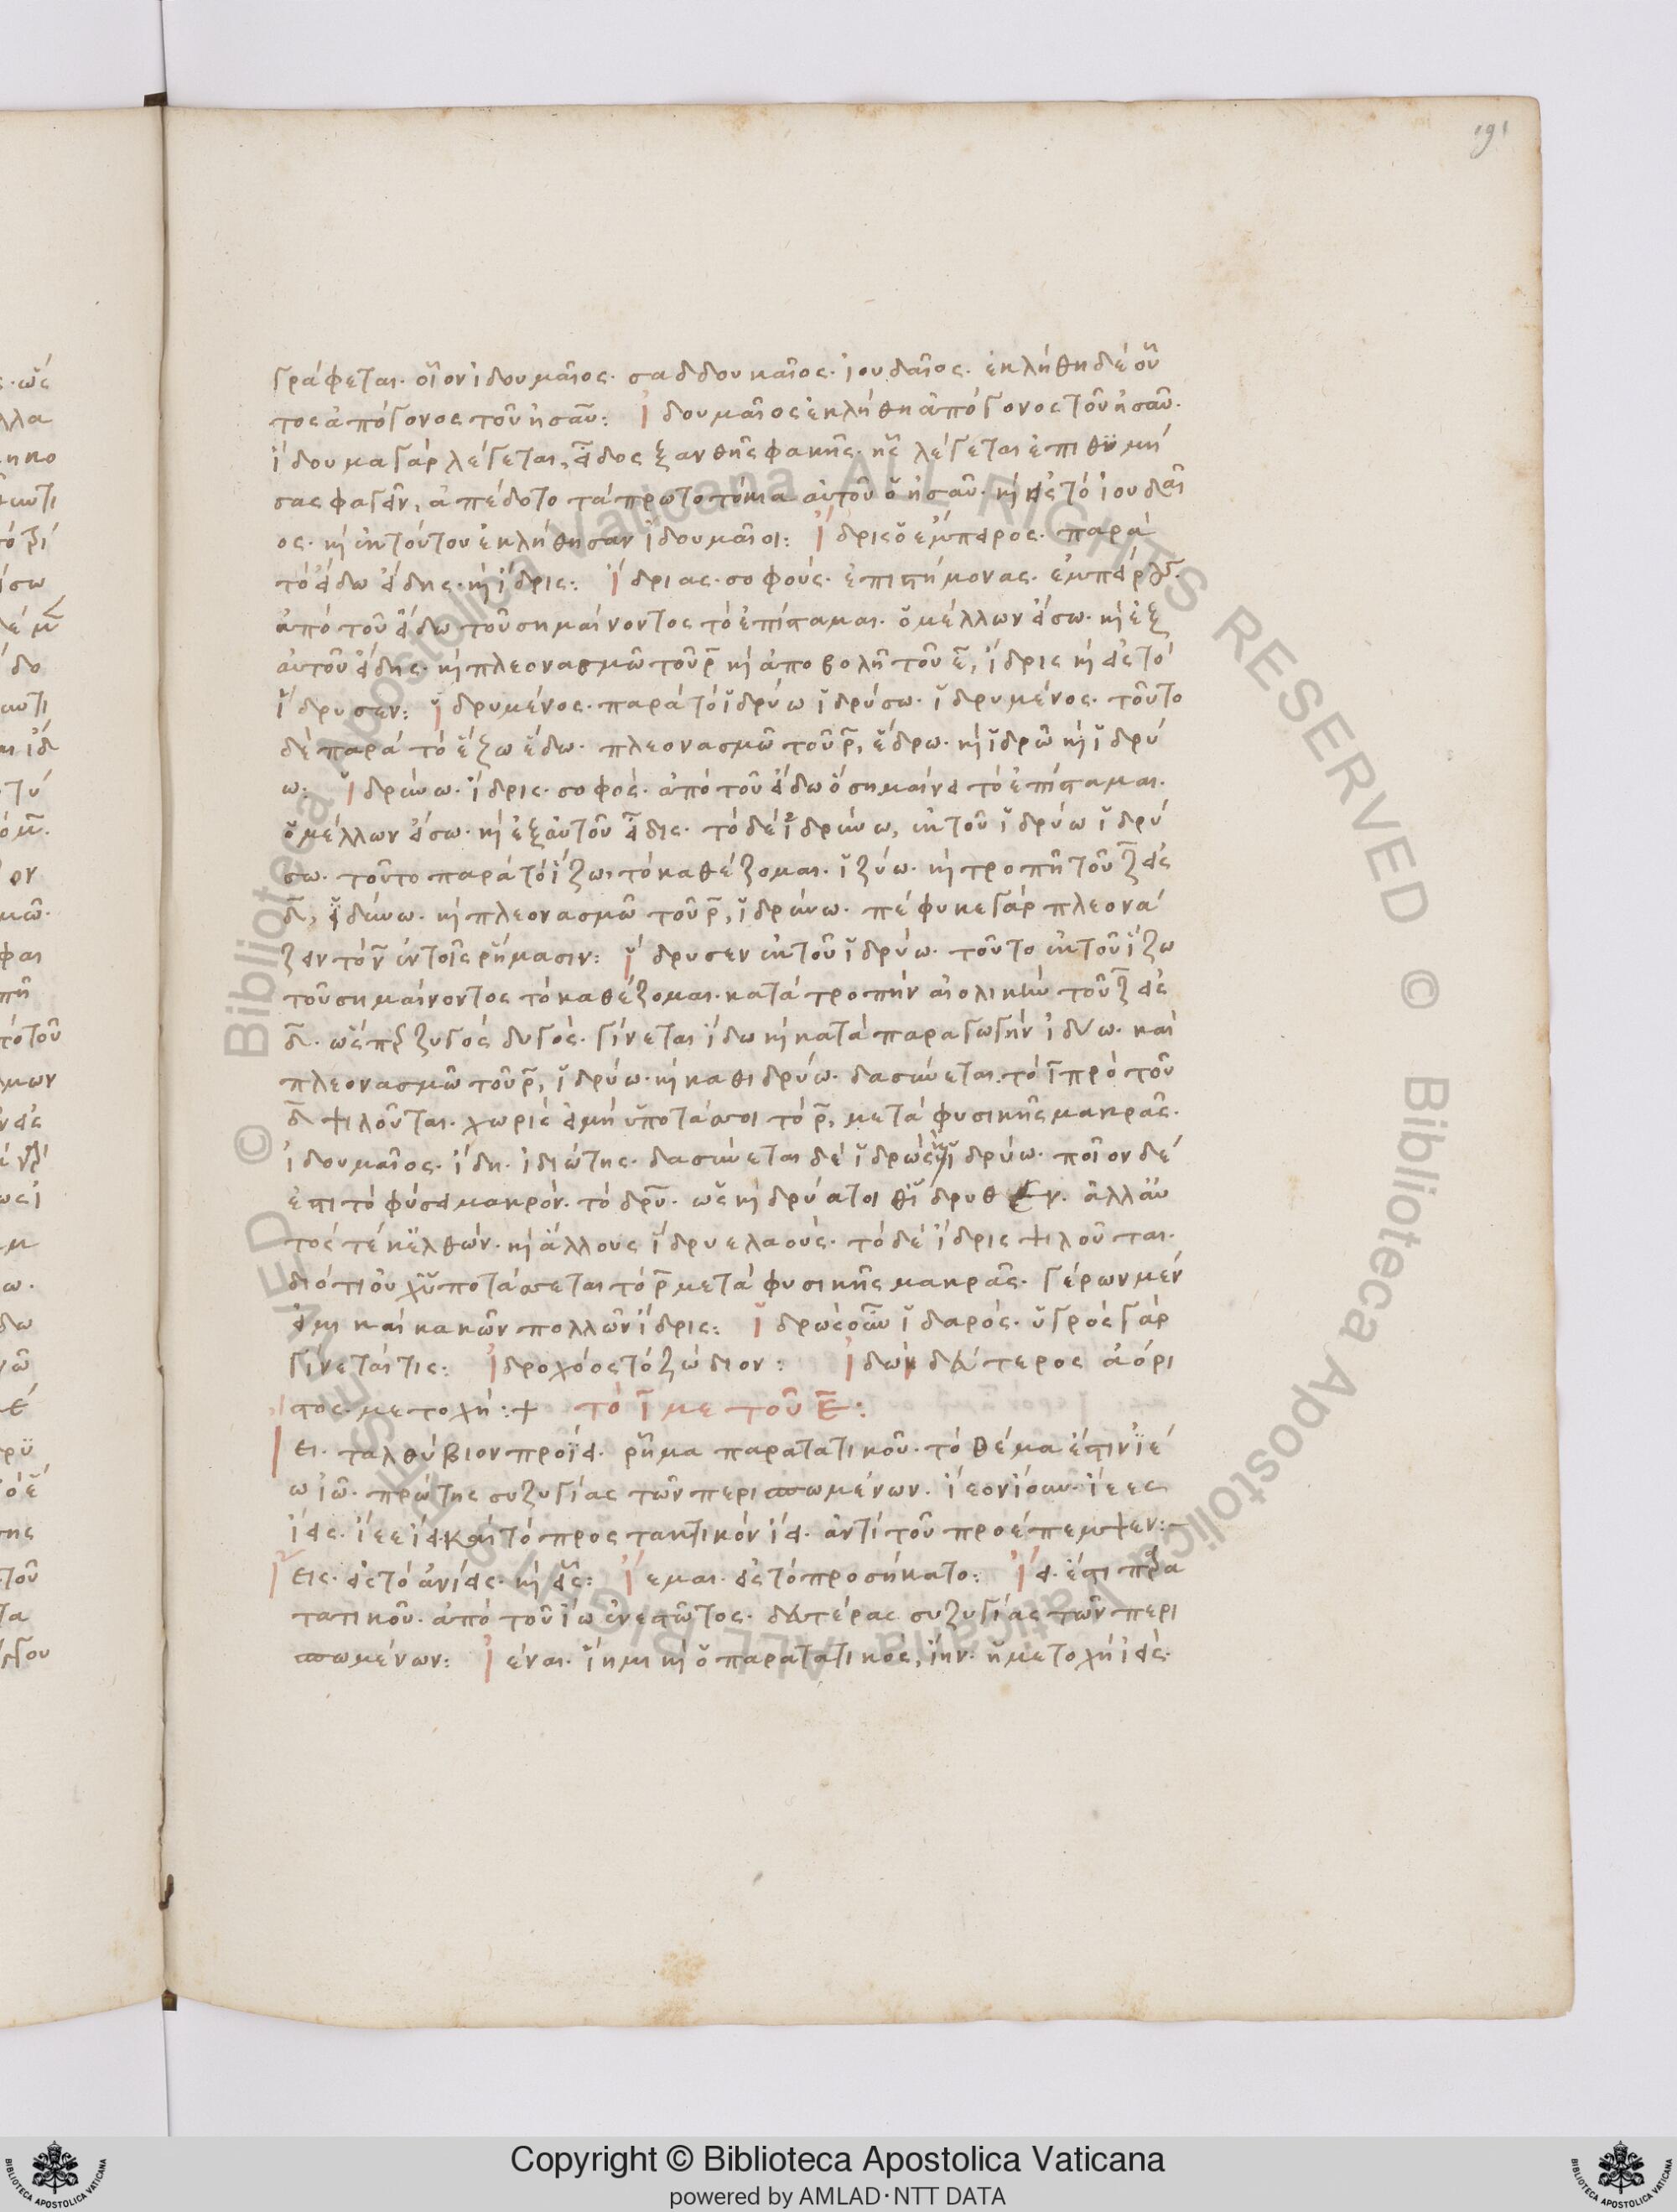 191
γράφεται· οἷον ἰδουμαῖος· σαδδουκαῖος· ἰουδαῖος· ἐκλήθη δὲ οὗ
τος ἀπόγονος τοῦ ἠσαῦ: Ἰδουμαῖος ἐκλήθη ἀπόγονος τοῦ ἠσαῦ·
ἴδουμα γὰρ λέγεται, εἶδος ξανθῆς φακῆς· ἧς λέγεται ἐπιθυμή
σας φαγεῖν, ἀπέδοτο τὰ πρωτοτόκια αὐτοῦ ὁ ἠσαῦ· κὶ εἰς τὸ ἰουδαῖ
ος· κὶ ἐκ τούτου ἐκλήθησαν ἰδουμαῖοι: Ἴδρις ὁ ἔμπειρος· παρὰ
τὸ εἴδω εἴδης· κὶ ἴδρις: Ἴδριας· σοφούς· ἐπιστήμονας· ἐμπείρους·
ἀπὸ τοῦ εἴδω τοῦ σημαίνοντος τὸ ἐπίσταμαι· ὁ μέλλων εἴσω· κὶ ἐξ
αὐτοῦ εἴδης· κὶ πλεονασμῶ τοῦ ρ̄ κὶ ἀποβολῆ τοῦ ε̄, ἴδρις κὶ εἰς τὸ
ἵδρυσεν: Ἱδρυμένος· παρὰ τὸ ἱδρύω ἱδρύσω· ἱδρυμένος· τοῦτο
δὲ παρὰ τὸ ἕζω ἕδω· πλεονασμῶ τοῦ ρ̄, ἕδρω· κὶ ἱδρῶ κὶ ἱδρύ
ω: Ἱδρύνω· ἴδρις· σοφός· ἀπὸ τοῦ εἴδω ὃ σημαίνει τὸ ἐπίσταμαι·
ὁ μέλλων εἴσω· κὶ ἐξ αὐτοῦ εἶδις· τὸ δὲ ἱδρύνω, ἐκ τοῦ ἱδρύω ἱδρύ
σω· τοῦτο παρὰ τὸ ἵζω, τὸ καθέζομαι· ἱζύω· κὶ τροπῆ τοῦ ζ̄ εἰς
δ̄, ἱδύνω· κὶ πλεονασμῶ τοῦ ρ̄, ἱδρύνω· πέφυκε γὰρ πλεονά
ζειν τὸ ν̄ ἐν τοῖς ῥήμασιν: Ἵδρυσεν ἐκ τοῦ ἱδρύω· τοῦτο ἐκ τοῦ ἵζω
τοῦ σημαίνοντος τὸ καθέζομαι· κατὰ τροπὴν αἰολικὴν τοῦ ζ̄ εἰς
δ̄· ὥσπερ ζυγός δυγός· γίνεται ἵδω κὶ κατὰ παραγωγὴν ἰδύω· καὶ
πλεονασμῶ τοῦ ρ̄, ἱδρύω· κὶ καθιδρύω· δασύνεται· τὸ ῑ πρὸ τοῦ
δ̄ ψιλοῦται· χωρὶς εἰ μὴ ὑποτάσσοι τὸ ρ̄, μετὰ φυσικῆς μακρᾶς·
ἰδουμαῖος· ἴδη· ἰδιώτης· δασύνεται δὲ ἱδρὼς κὶ ἱδρύω· ποῖον δέ
ἐστι τὸ φύσει μακρόν· τὸ δρῦ· ὡς κὶ δρύατοι
τός τέ κὲλθών· κὶ ἄλλους ἵδρυε λαούς· τὸ δὲ ἴδρις ψιλοῦται·
διότι οὐχ ὑποτάσσεται τὸ ρ̄ μετὰ φυσικῆς μακρᾶς· γέρων μέν
εἰμι καὶ κακῶν πολλῶν ἴδρις: Ἱδρὼς οἷον ἱδαρός· ὑγρὸς γὰρ
γίνεταί τις: Ἰδροχόος τὸ ζώδιον: Ἰδὼν δεύτερος ἀόρι
στος· μετοχή:+ τὸ ῑ με τοῦ ε̄:
Ἵει· ταλθύβιον προΐει· ῥῆμα παρατατικοῦ· τὸ θέμα ἐστὶν ἱέ
ω ἱῶ· πρώτης συζυγίας τῶν περισπωμένων· ἵεον ἵουν· ἵεες
ἵεις· ἵεε ἵει· καὶ τὸ προστακτικὸν ἵει· ἀντὶ τοῦ προέπεμψεν:-
Ἵεις· εἰς τὸ ἀνίεις· κὶ εἷς: Ἵεμαι· εἰς τὸ προσήκατο: Ἵει· ἔστι παρα
τατικοῦ· ἀπὸ τοῦ ἱῶ ἐνεστῶτος· δευτέρας συζυγίας τῶν περι
σπωμένων: Ἱέναι· ἵημι κὶ ὁ παρατατικός, ἵην· ἡ μετοχὴ ἱείς·
Copyright © Biblioteca Apostolica Vaticana
powered by AMLAD·NTT DATA